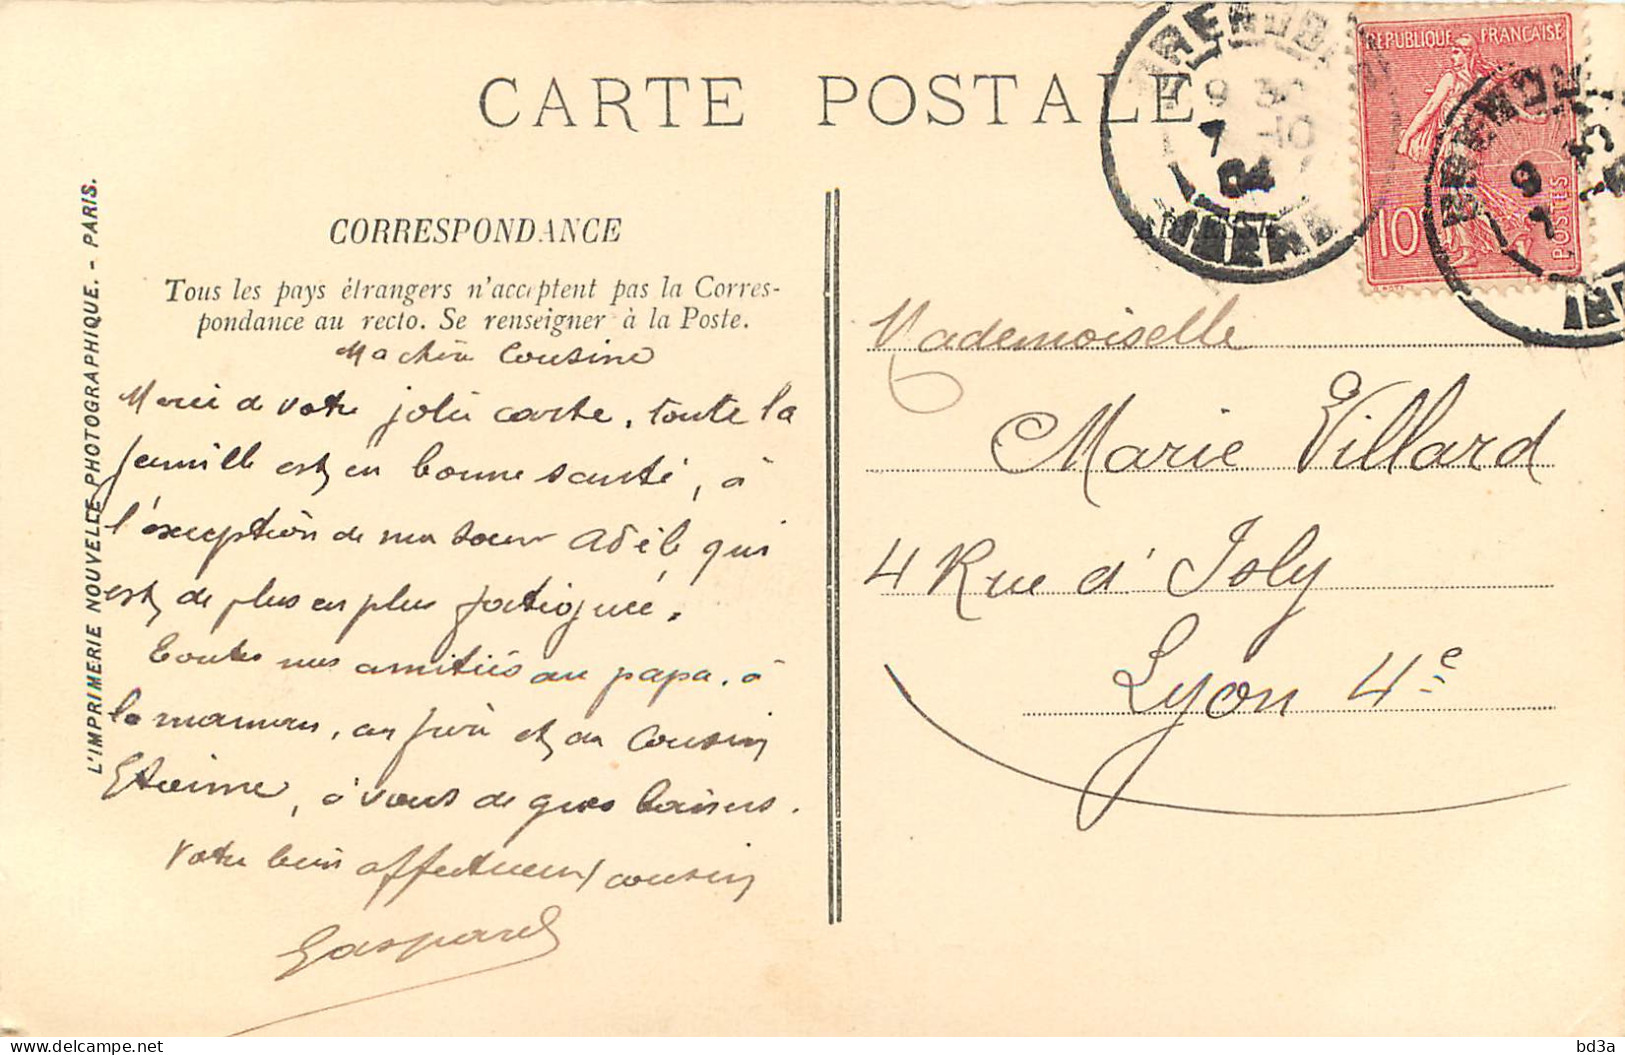 CARTE POSTALE
RÉPUBLIQUE FRANÇAISE
10c
POSTES
9 30
7 -10
04
ISÈRE
L'IMPRIMERIE NOUVELLE PHOTOGRAPHIQUE. - PARIS.
CORRESPONDANCE
Tous les pays étrangers n'acceptent pas la Corres-
pondance au recto. Se renseigner à la Poste.
Ma chère Cousine
Merci de votre jolie carte. toute la
famille est en bonne santé, à
l'exception de ma soeur Adèle qui
est de plus en plus fatiguée.
Toutes nos amitiés au papa. à
la maman, au frère et au Cousin
Etienne, à vous de gros baisers.
Votre bien affectueux cousin
Gaspard
Mademoiselle
Marie Villard
4 Rue d'Isly
Lyon 4e
bd3a